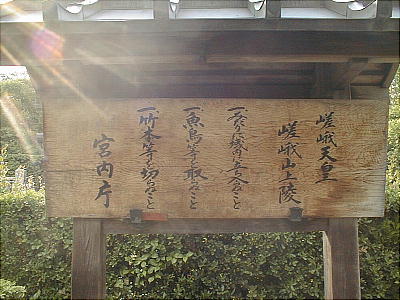 嵯峨天皇
嵯峨山上陵
一、みだりに域内に立入らぬこと
一、魚鳥等を取らぬこと
一、竹木等を切らぬこと
宮内庁